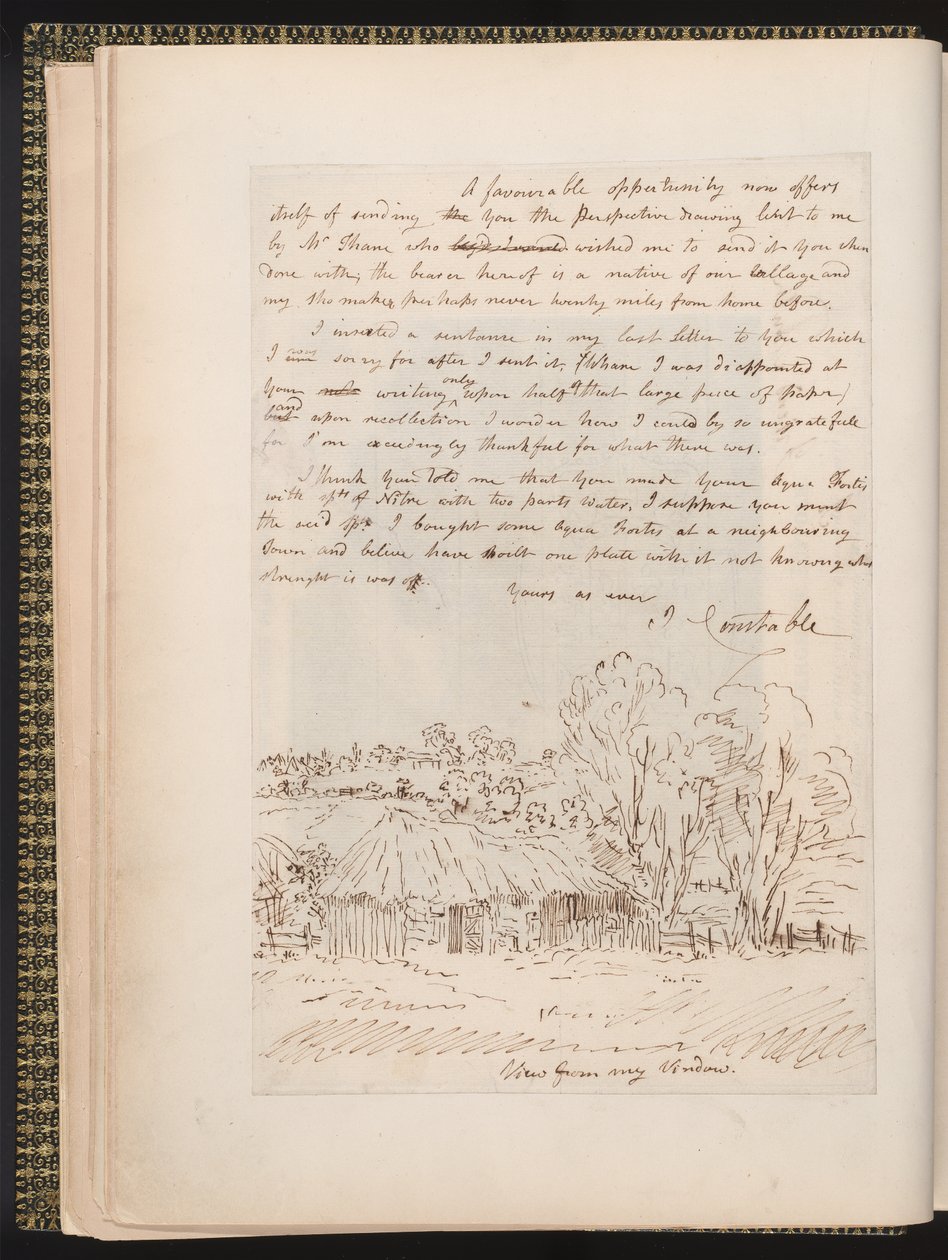 A favourable oppertunity now offers
itself of sending the you the Perspective drawing lent to me
by Mr Thane who wished me to send it you when
done with; the bearer hereof is a native of our village and
my sho maker, perhaps never twenty miles from home before.
I inserted a sentance in my last Letter to you which
I was sorry for after I sent it. (Whare I was diappointed at
your not writing only upon half of that large piece of paper)
but and upon recollection I wonder how I could by so ungratefull
for I'm exceedingly thankful for what there was.
I think you told me that you made your Aqua Fortis
with spts of Nitre with two parts water, I suppose you ment
the acid spt. I bought some Aqua Fortis at a neighbouring
Town and belive have spoilt one plate with it not knowing what
strenght is was off.
Yours as ever
J Constable
View from my Window.